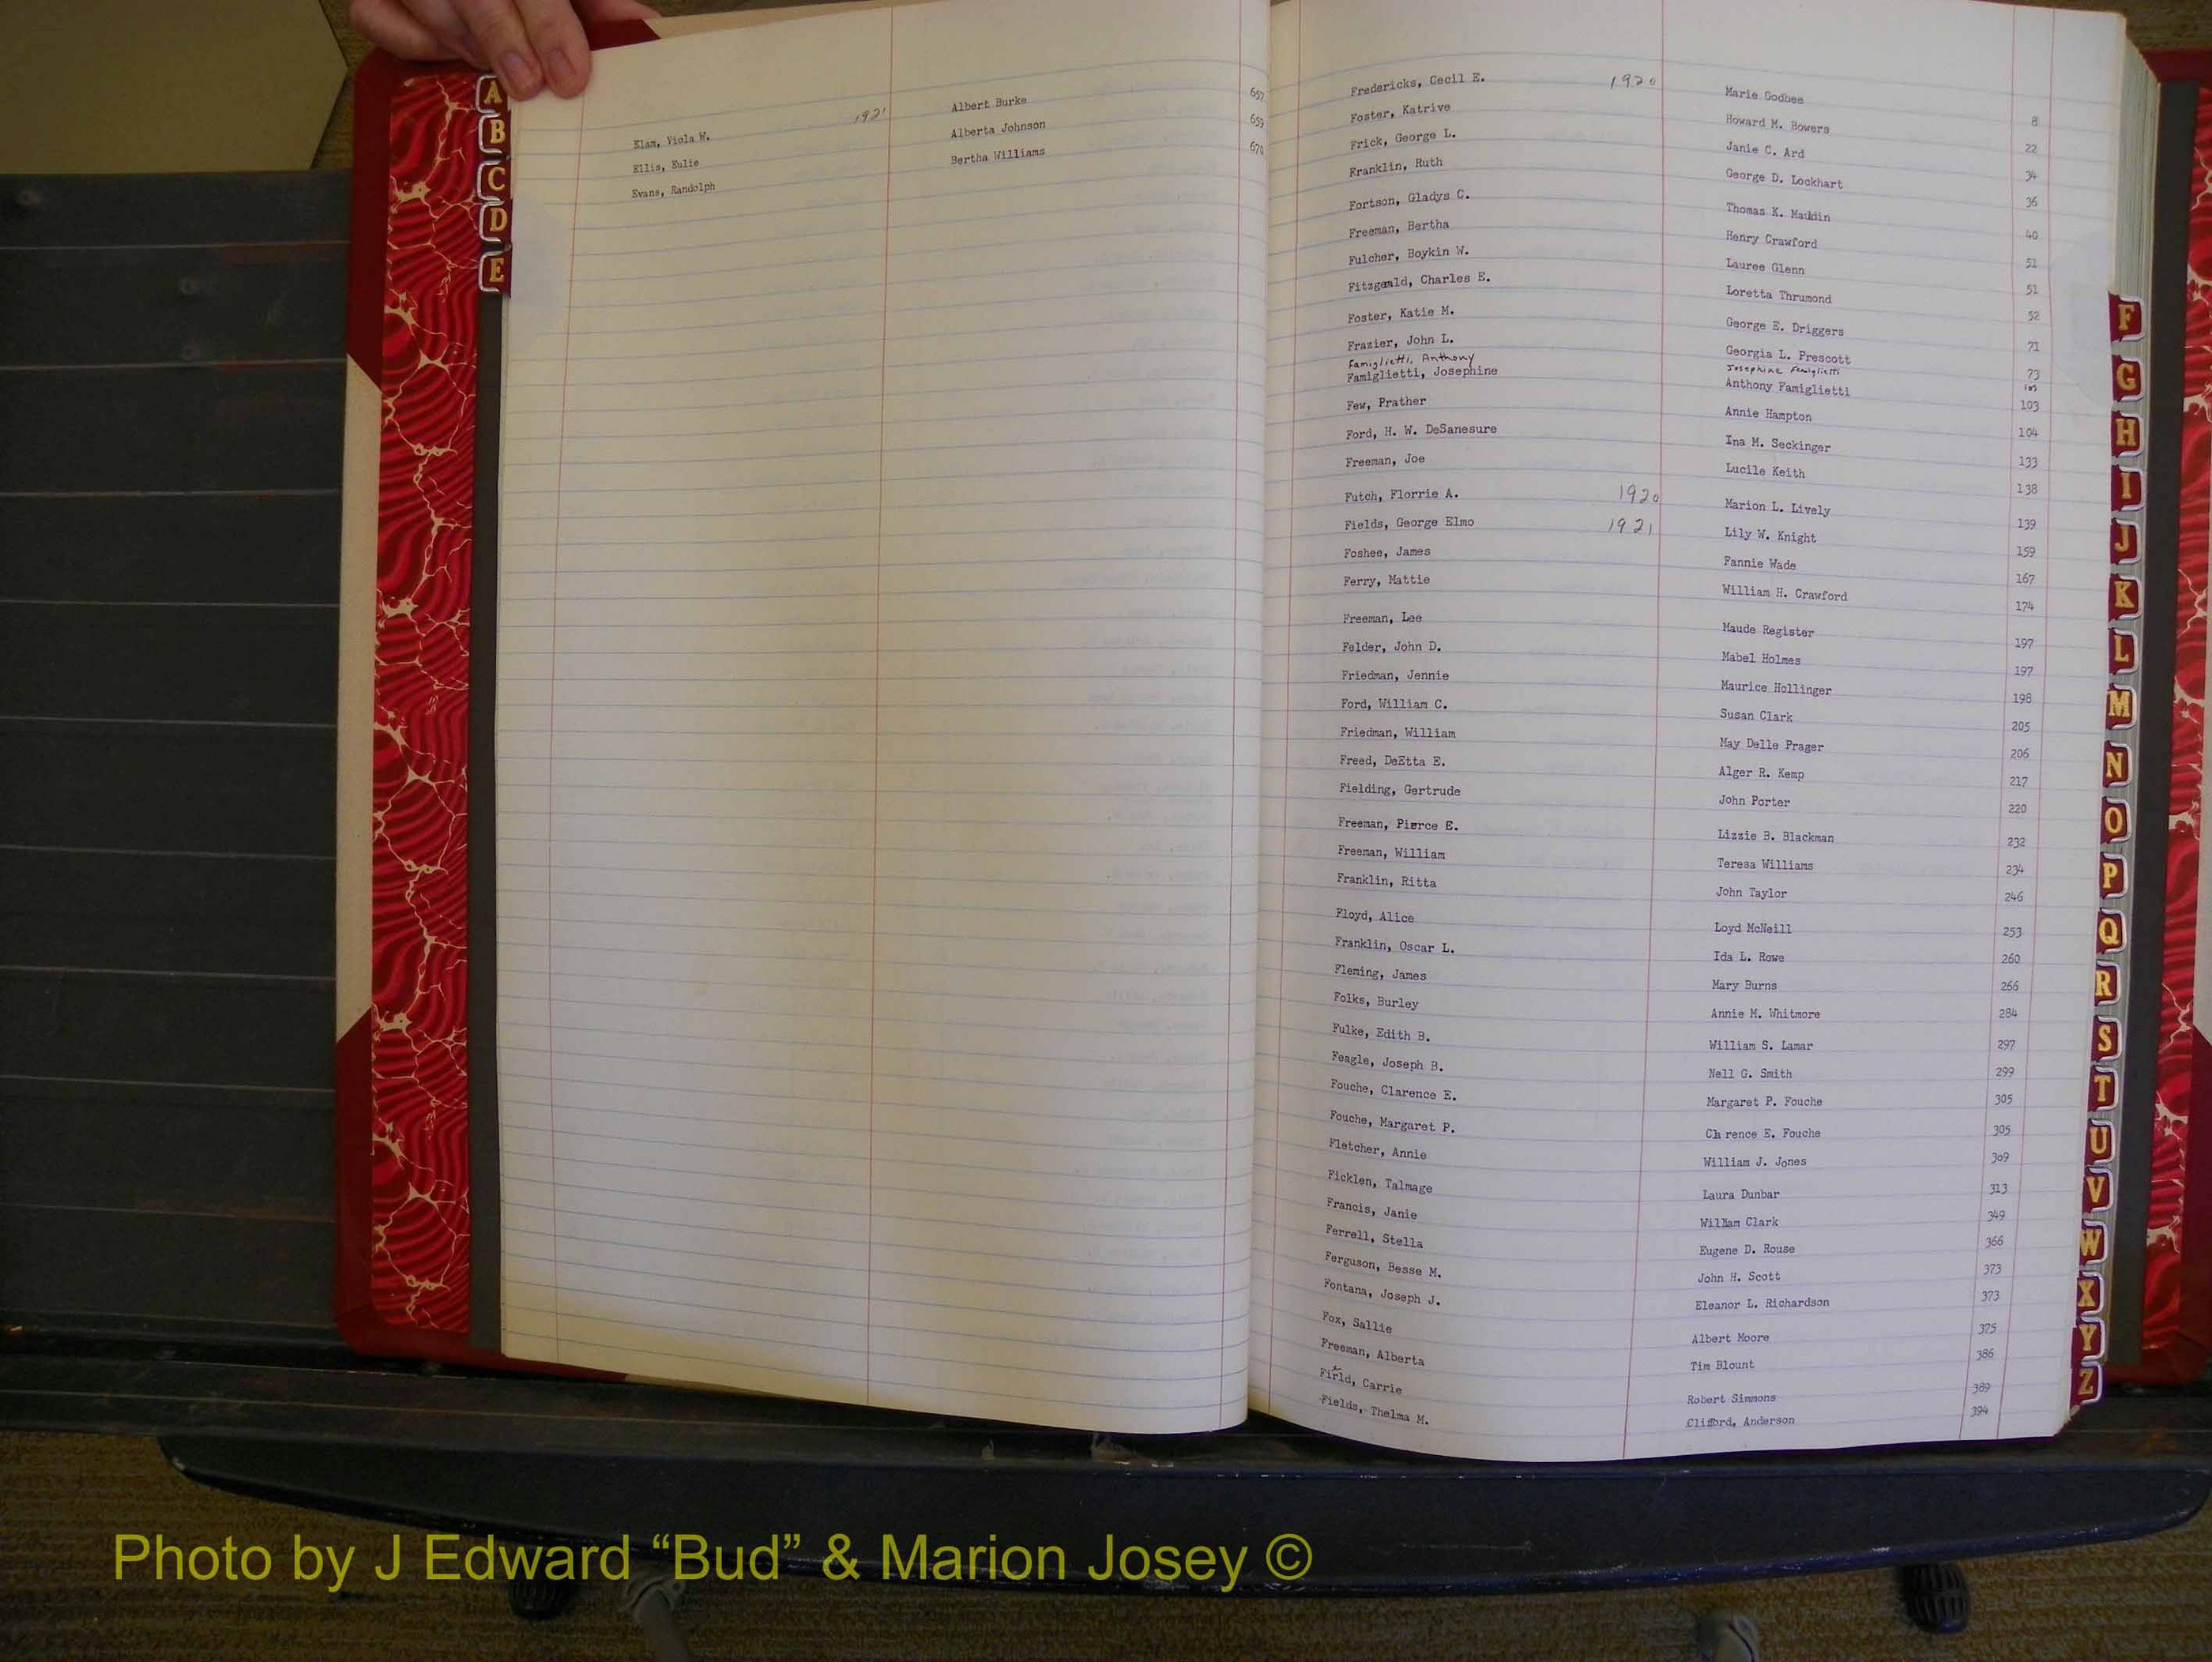 A
B
C
D
E
Elam, Viola W. 1921 Albert Burke 657
Ellis, Eulie Alberta Johnson 659
Evans, Randolph Bertha Williams 670
Fredericks, Cecil E. 1920 Marie Godbee 8
Foster, Katrive Howard M. Bowers 22
Frick, George L. Janie C. Ard 34
Franklin, Ruth George D. Lockhart 36
Fortson, Gladys C. Thomas K. Mauldin 40
Freeman, Bertha Henry Crawford 51
Fulcher, Boykin W. Lauree Glenn 51
Fitzgerald, Charles E. Loretta Thrumond 52
Foster, Katie M. George E. Driggers 71
Frazier, John L. Georgia L. Prescott 73
Famiglietti, Anthony Josephine Famiglietti 103
Famiglietti, Josephine Anthony Famiglietti 103
Few, Prather Annie Hampton 104
Ford, H. W. DeSanesure Ina M. Seckinger 133
Freeman, Joe Lucile Keith 138
Futch, Florrie A. 1920 Marion L. Lively 139
Fields, George Elmo 1921 Lily W. Knight 159
Foshee, James Fannie Wade 167
Ferry, Mattie William H. Crawford 174
Freeman, Lee Maude Register 197
Felder, John D. Mabel Holmes 197
Friedman, Jennie Maurice Hollinger 198
Ford, William C. Susan Clark 205
Friedman, William May Delle Prager 206
Freed, DeEtta E. Alger R. Kemp 217
Fielding, Gertrude John Porter 220
Freeman, Pierce E. Lizzie B. Blackman 232
Freeman, William Teresa Williams 234
Franklin, Ritta John Taylor 246
Floyd, Alice Loyd McNeill 253
Franklin, Oscar L. Ida L. Rowe 260
Fleming, James Mary Burns 266
Folks, Burley Annie M. Whitmore 284
Fulke, Edith B. William S. Lamar 297
Feagle, Joseph B. Nell G. Smith 299
Fouche, Clarence E. Margaret P. Fouche 305
Fouche, Margaret P. Cla rence E. Fouche 305
Fletcher, Annie William J. Jones 309
Ficklen, Talmage Laura Dunbar 313
Francis, Janie William Clark 349
Ferrell, Stella Eugene D. Rouse 366
Ferguson, Besse M. John H. Scott 373
Fontana, Joseph J. Eleanor L. Richardson 373
Fox, Sallie Albert Moore 375
Freeman, Alberta Tim Blount 386
Field, Carrie Robert Simmons 389
Fields, Thelma M. Clifford, Anderson 394
F
G
H
I
J
K
L
M
N
O
P
Q
R
S
T
U
V
W
X
Y
Z
Photo by J Edward “Bud” & Marion Josey ©